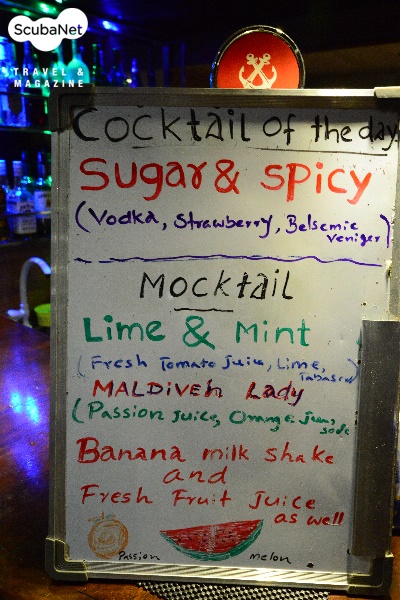 ScubaNet
TRAVEL &
MAGAZINE
Cocktail of the day
Sugar & spicy
(Vodka, Strawberry, Belsemic
veniger)
Mocktail
Lime & Mint
(Fresh Tomato Juice, Lime,
Tabasco)
MALDIVEH Lady
(Passion Juice, Orange Juce,
soda
Banana milk shake
and
Fresh Fruit Juice
as well
Passion melon.